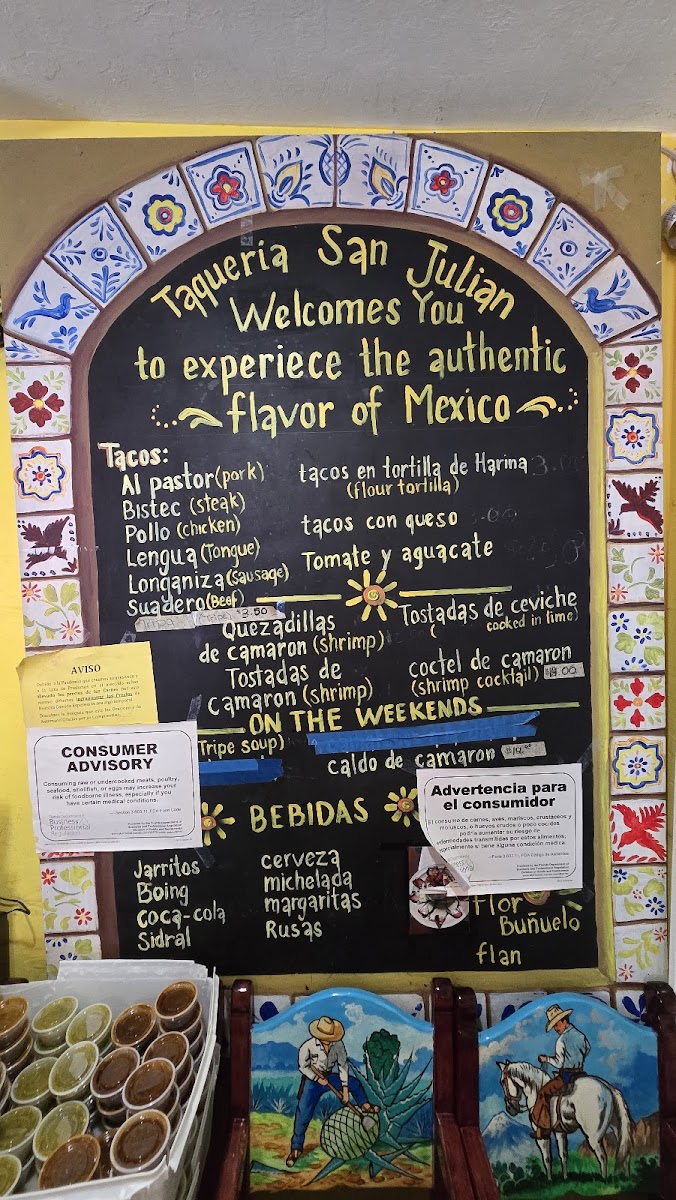 Taqueria San Julian
Welcomes You
to experiece the authentic
flavor of Mexico
Tacos:
Al pastor (pork)
Bistec (steak)
Pollo (chicken)
Lengua (Tongue)
Longaniza (Sausage)
Suadero (Beef)
$3.50
tacos en tortilla de Harina
(flour tortilla)
tacos con queso
Tomate y aguacate
Quezadillas
de camaron (shrimp)
Tostadas de
camaron (shrimp)
Tostadas de ceviche
( cooked in lime)
coctel de camaron
(shrimp cocktail)
ON THE WEEKENDS
(Tripe soup)
caldo de camaron
BEBIDAS
Jarritos
Boing
coca-cola
Sidral
cerveza
michelada
margaritas
Rusas
flor
Buñuelo
flan
AVISO
CONSUMER
ADVISORY
Consuming raw or undercooked meats, poultry,
seafood, shellfish, or eggs may increase your
risk of foodborne illness, especially if you
have certain medical conditions.
Business
Professional
Regulation
Advertencia para
el consumidor
El consumo de carnes, aves, mariscos, crustáceos y
moluscos, o huevos crudos o poco cocidos
podría aumentar su riesgo de
enfermedades transmitidas por estos alimentos,
especialmente si tiene alguna condición médica